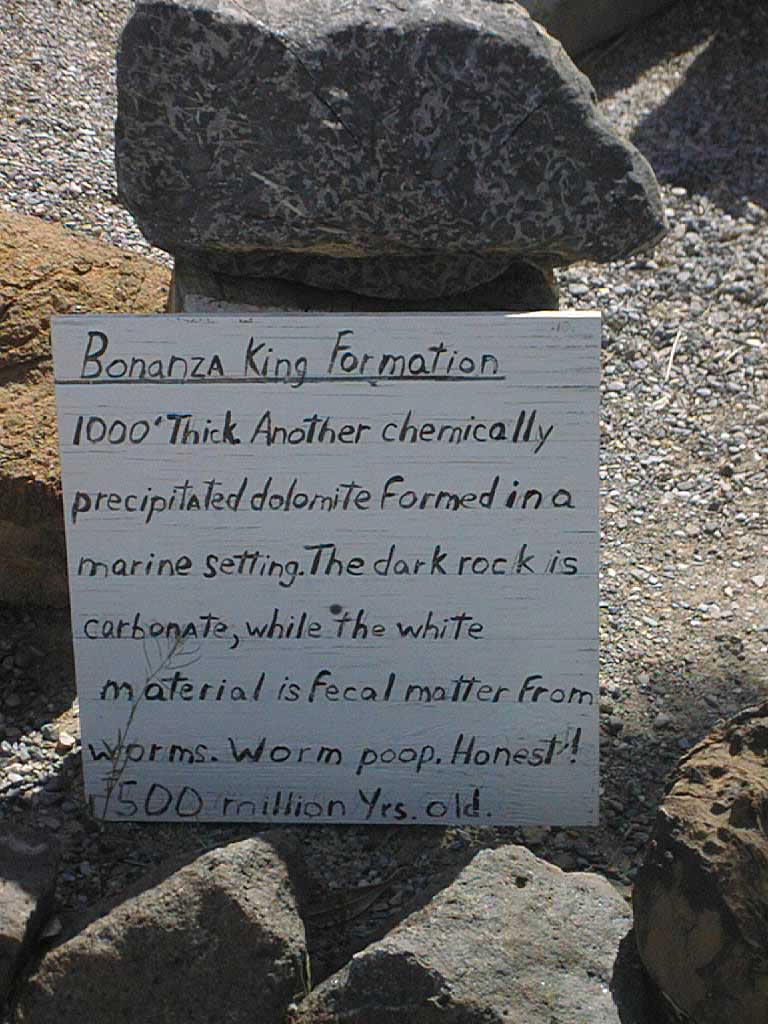 Bonanza King Formation
1000' Thick. Another chemically
precipitated dolomite formed in a
marine setting. The dark rock is
carbonate, while the white
material is fecal matter from
worms. Worm poop. Honest!
500 million Yrs. old.